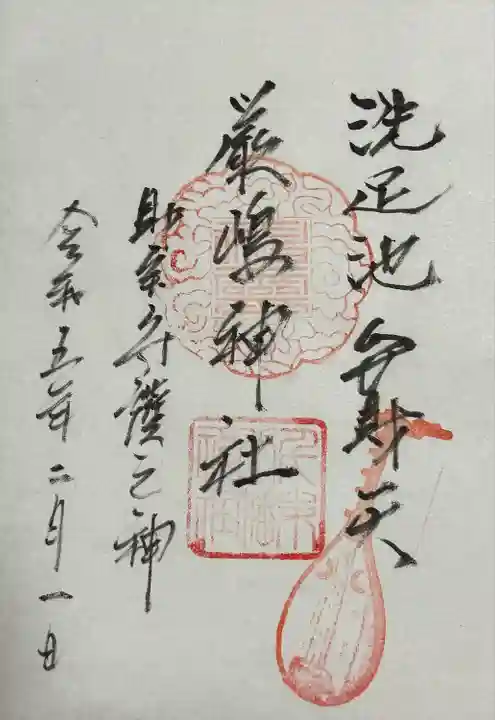 洗足池 弁財天
厳嶋神社
財宝弁護之神
令和五年二月一日